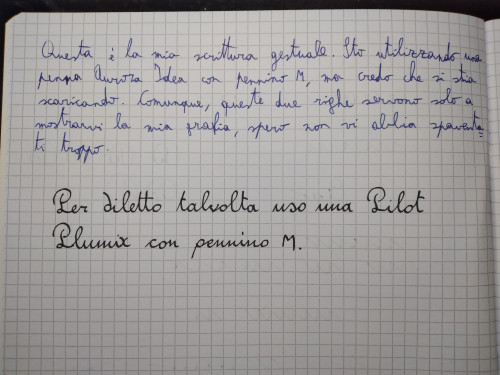 Questa è la mia scrittura gestuale. Sto utilizzando una
penna Aurora Idea con pennino M, ma credo che si stia
scaricando. Comunque, queste due righe servono solo a
mostrarvi la mia grafia, spero non vi abbia spaventa=
ti troppo.
Per diletto talvolta uso una Pilot
Plumix con pennino M.